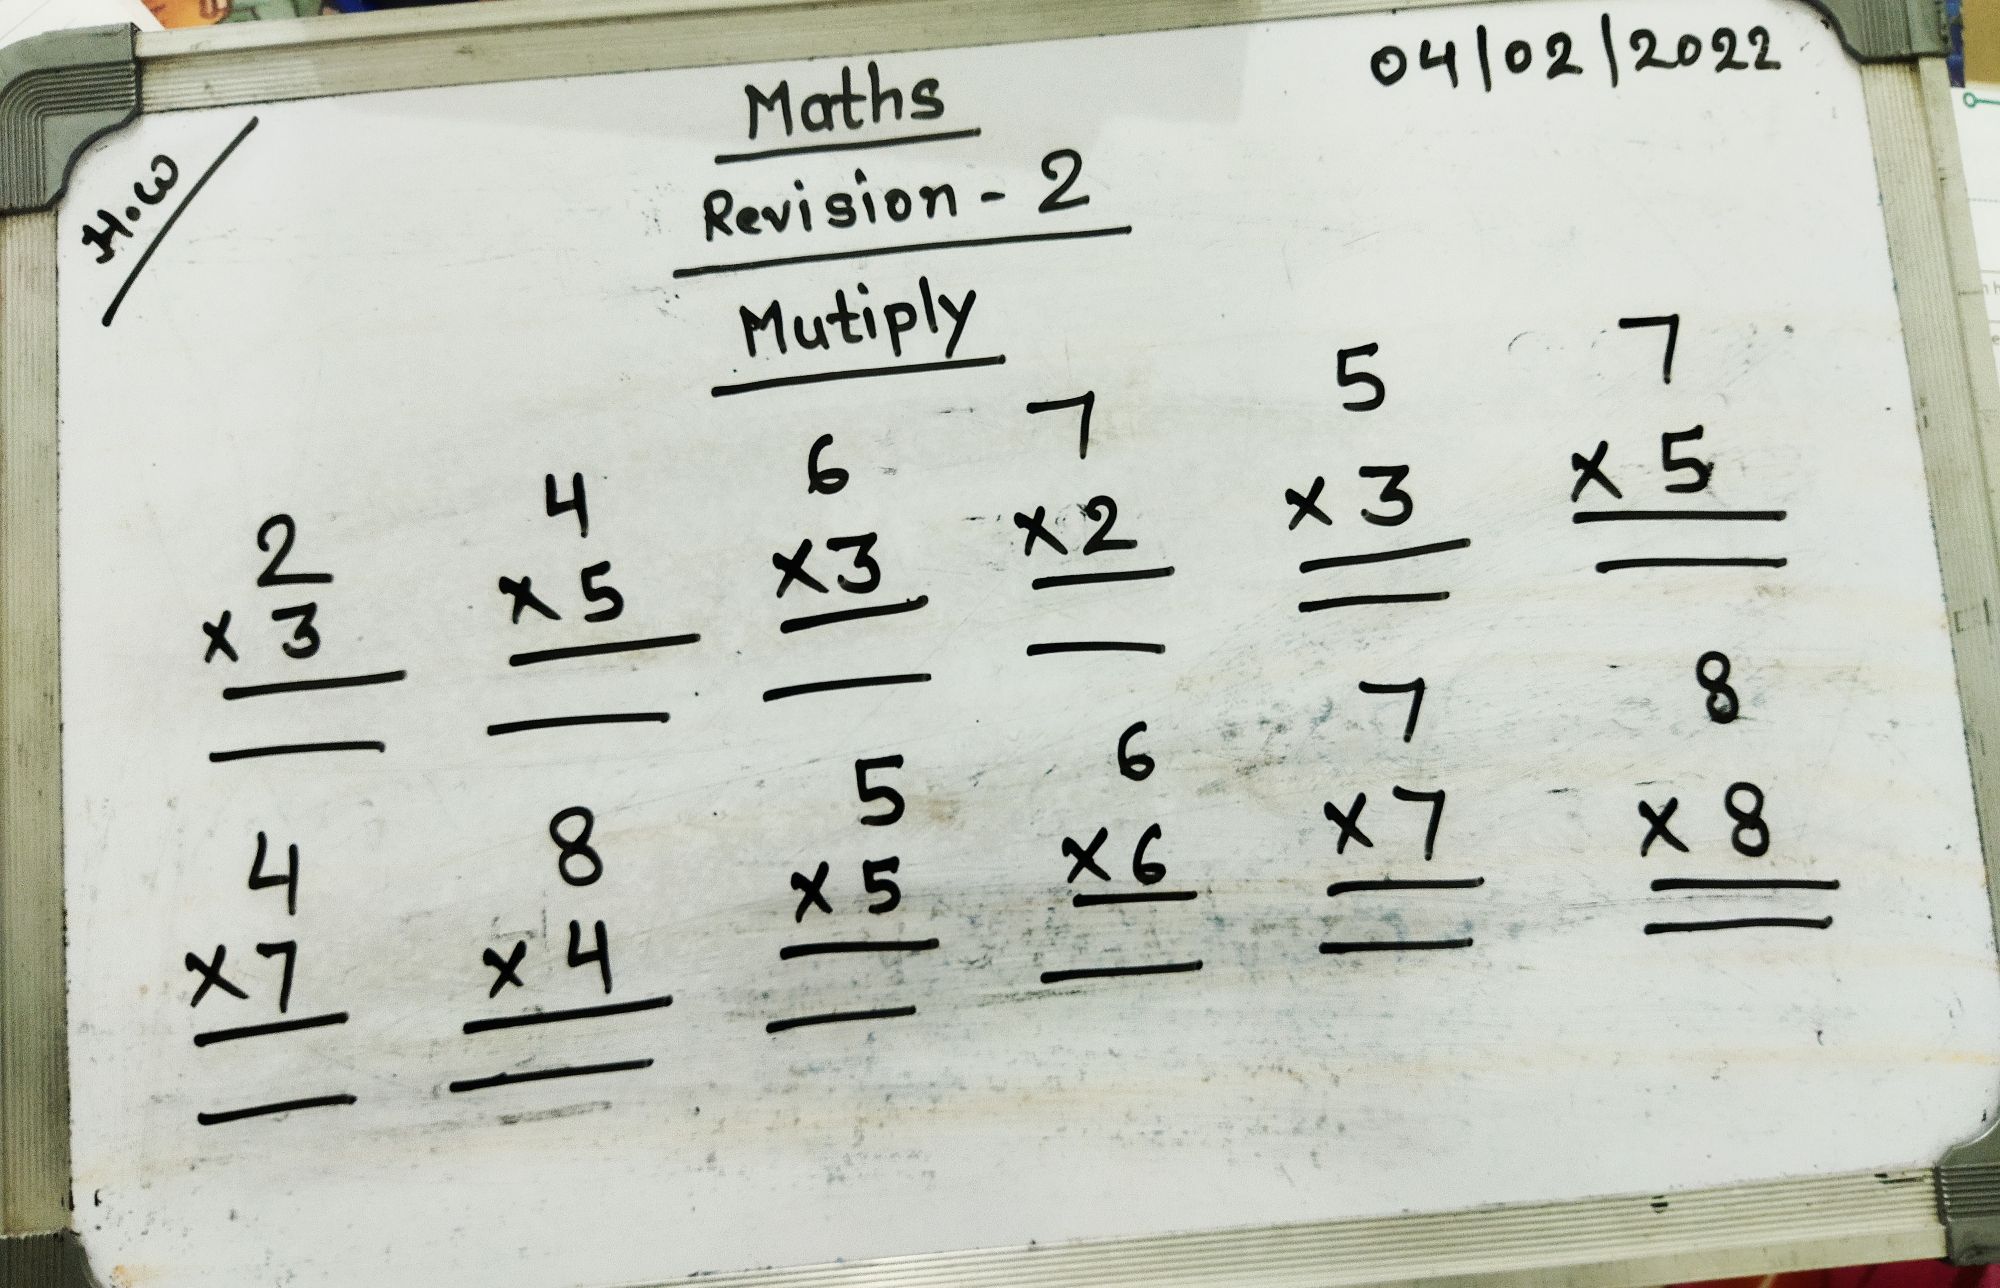 04/02/2022
H.W
Maths
Revision - 2
Mutiply
2 4 6 7 5 7
x 3 x 5 x 3 x 2 x 3 x 5
4 8 5 6 7 8
x 7 x 4 x 5 x 6 x 7 x 8